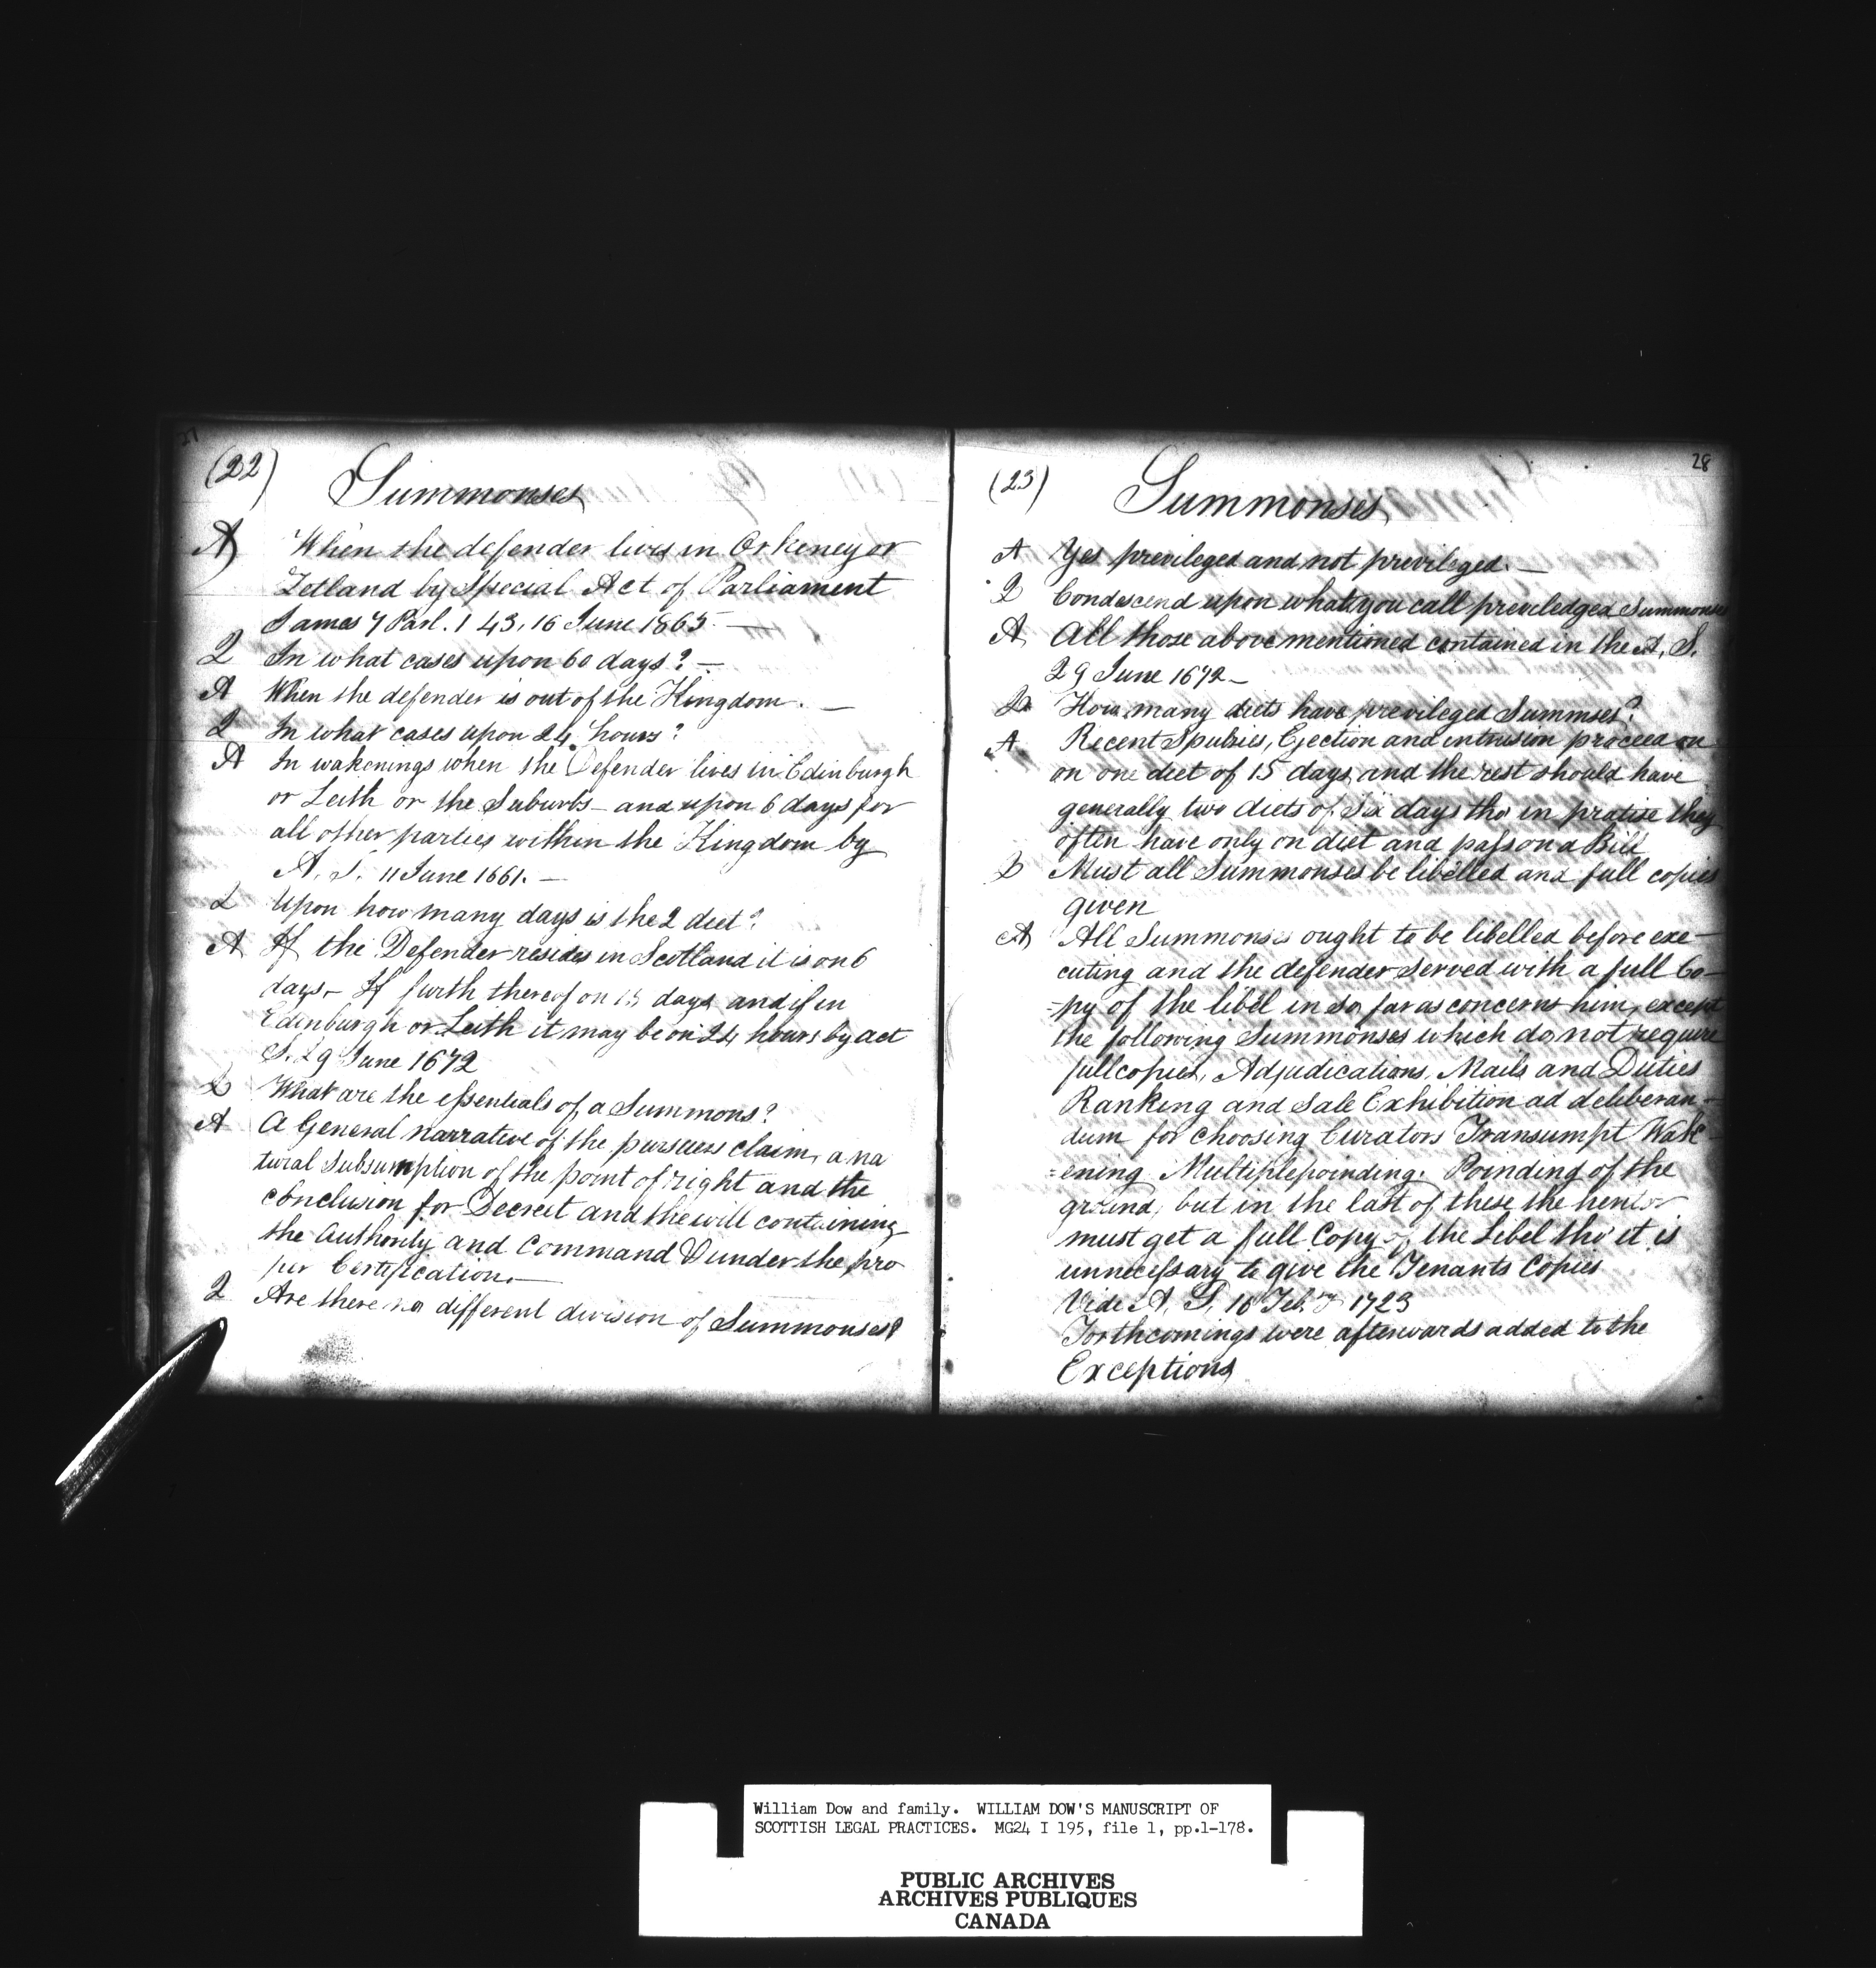 27
(22)
Summonses
A When the defender lives in Orkeney or
Zetland by Special Act of Parliament
James 7 Parl. 1 43, 16 June 1865 —
Q In what cases upon 60 days? —
A When the defender is out of the Kingdom. —
Q In what cases upon 24 hours?
A In wakenings when the Defender lives in Edinburgh
or Leith or the Suburbs - and upon 6 days for
all other parties within the Kingdom by
A. S. 11 June 1661. —
Q Upon how many days is the 2 diet?
A If the Defender resides in Scotland it is on 6
days - If furth thereof on 15 days and if in
Edinburgh or Leith it may be on 24 hours by act
S. 29 June 1672
Q What are the essentials of a Summons?
A A General narrative of the pursuers claim, a na
tural Subsumption of the point of right and the
conclusion for Decreet and the will containing
the Authority and Command under the pro
per Certification. —
Q Are there no different division of Summonses?
28
(23)
Summonses
A Yes previleged and not previleged. —
Q Condescend upon what you call previledged Summonses
A All those above mentioned contained in the A. S.
29 June 1672 -
Q How many diets have previleged Summses?
A Recent Spulzies, Ejection and intrusion proceed on
on one diet of 15 days and the rest should have
generally two diets of six days tho' in pratise they
often have only on diet and pass on a Bill
Q Must all Summonses be libelled and full copies
given
A All Summonses ought to be libelled before exe-
cuting and the defender served with a full Co-
-py of the libel in so far as concerns him, except
the following Summonses which do not require
full copies, Adjudications, Mails and Duties
Ranking and Sale Exhibition ad deliberan-
dum for choosing Curators Transumpt Wak-
=ening Multiplepoinding. Poinding of the
ground, but in the last of these the heritor
must get a full Copy of the Libel tho' it is
unnecessary to give the Tenants Copies
Vide A. S. 16 Feb.y 1723
Forthcomings were afterwards added to the
Exceptions
William Dow and family. WILLIAM DOW'S MANUSCRIPT OF
SCOTTISH LEGAL PRACTICES. MG24 I 195, file 1, pp.1-178.
PUBLIC ARCHIVES
ARCHIVES PUBLIQUES
CANADA